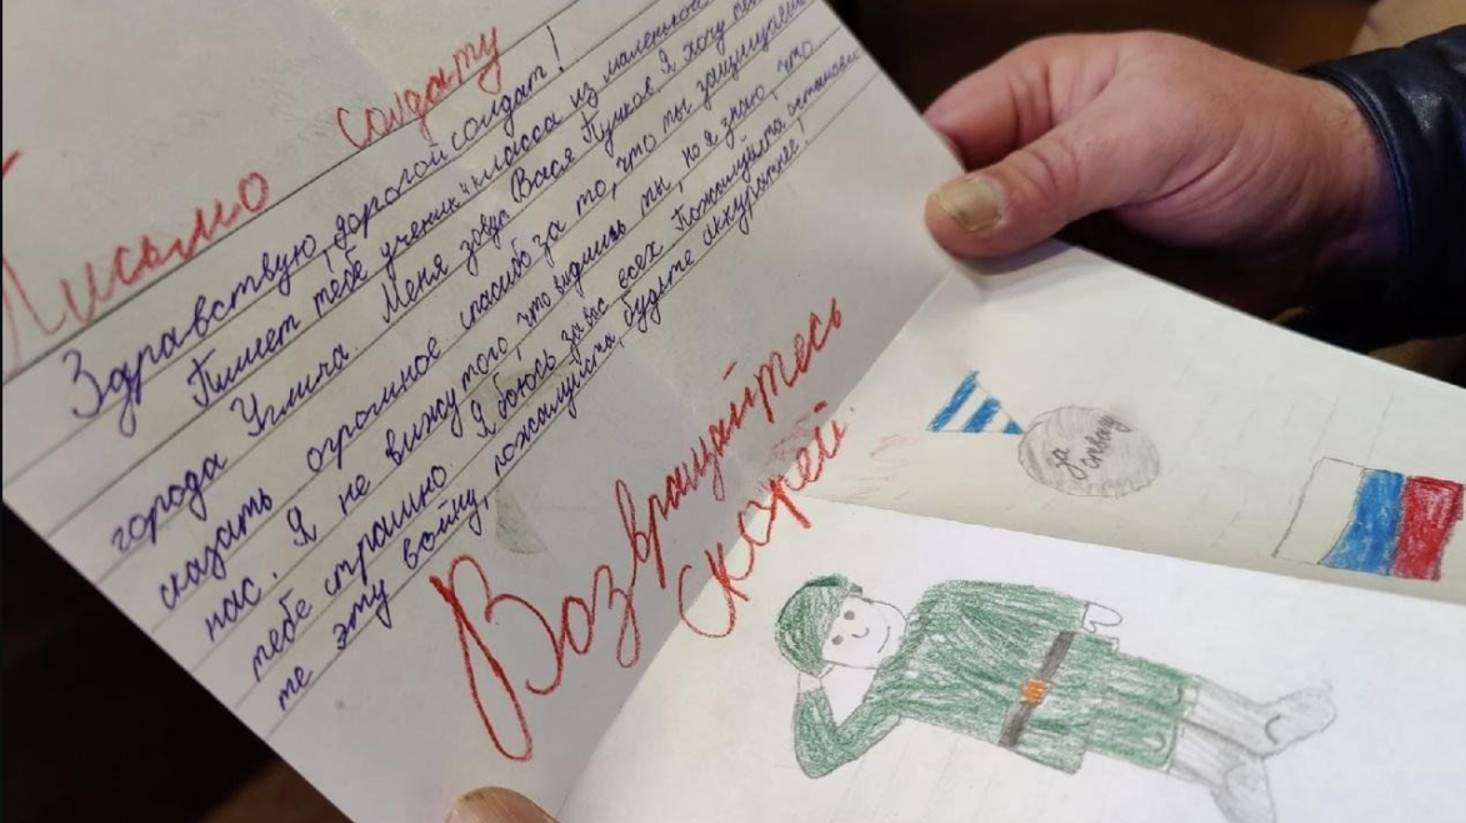 Письмо солдату
Здравствую, дорогой солдат!
Пишет тебе ученик класса из маленького
города Углича. Меня зовут Вася Пучков. Я хочу
сказать огромное спасибо за то, что ты защищаешь
нас. Я не вижу того, что видишь ты, но я знаю, что
тебе страшно. Я боюсь за вас всех Пожалуйста остановите
те эту войну, пожалуйста, будьте аккуратнее!
Возвращайтесь
скорей
за
отвагу